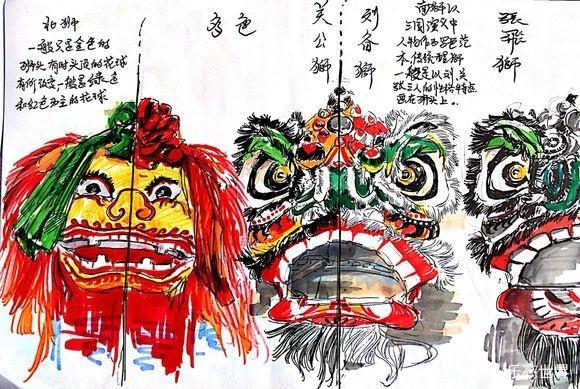 北狮
一般只是金色的
狮头,有时头顶的花球
有所改变,一般是绿色
和红色为主的花球
色
关公狮
刘备狮
南狮以
三国演义中
人物作为色范
本,传统醒狮
一般是以刘、关
张三人的性格特点
画在狮头上。
张飛狮
世界